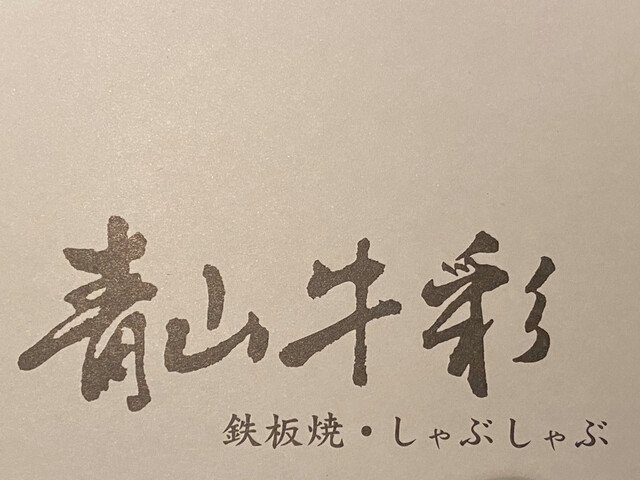 青山牛彩
鉄板焼・しゃぶしゃぶ